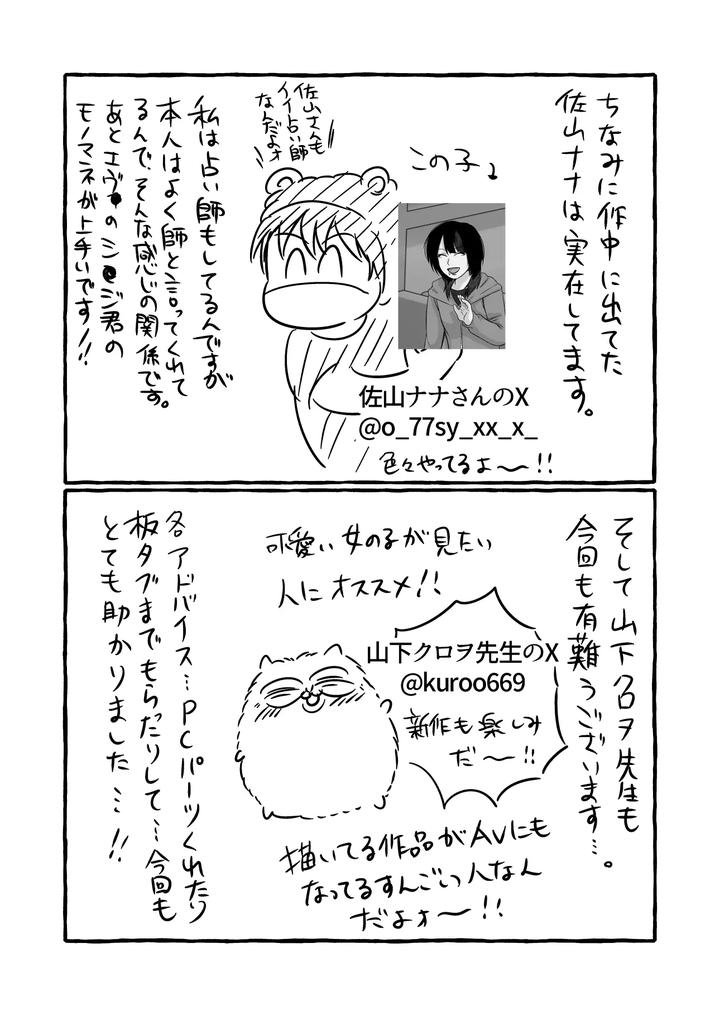 ちなみに作中に出てた
佐山ナナは実在してます。
この子
佐山さんも
イイ占い師
なんだよォ
佐山ナナさんのX
@o_77sy_xx_x_
色々やってるよ〜!!
私は占い師もしてるんですが
本人はよく師と言ってくれて
るんで、そんな感じの関係です。
あとエヴ●のシ●ジ君の
モノマネが上手いです!!
そして山下クロヲ先生も
今回も有難うございます…。
可愛い女の子が見たい
人にオススメ!!
山下クロヲ先生のX
@kuroo669
新作も楽しみ
だ〜!!
描いてる作品がAVにも
なってるすんごいつ人なん
だよォ〜!!
各アドバイス…PCパーツくれたり
板タブまでもらったりして…今回も
とても助かりました…!!